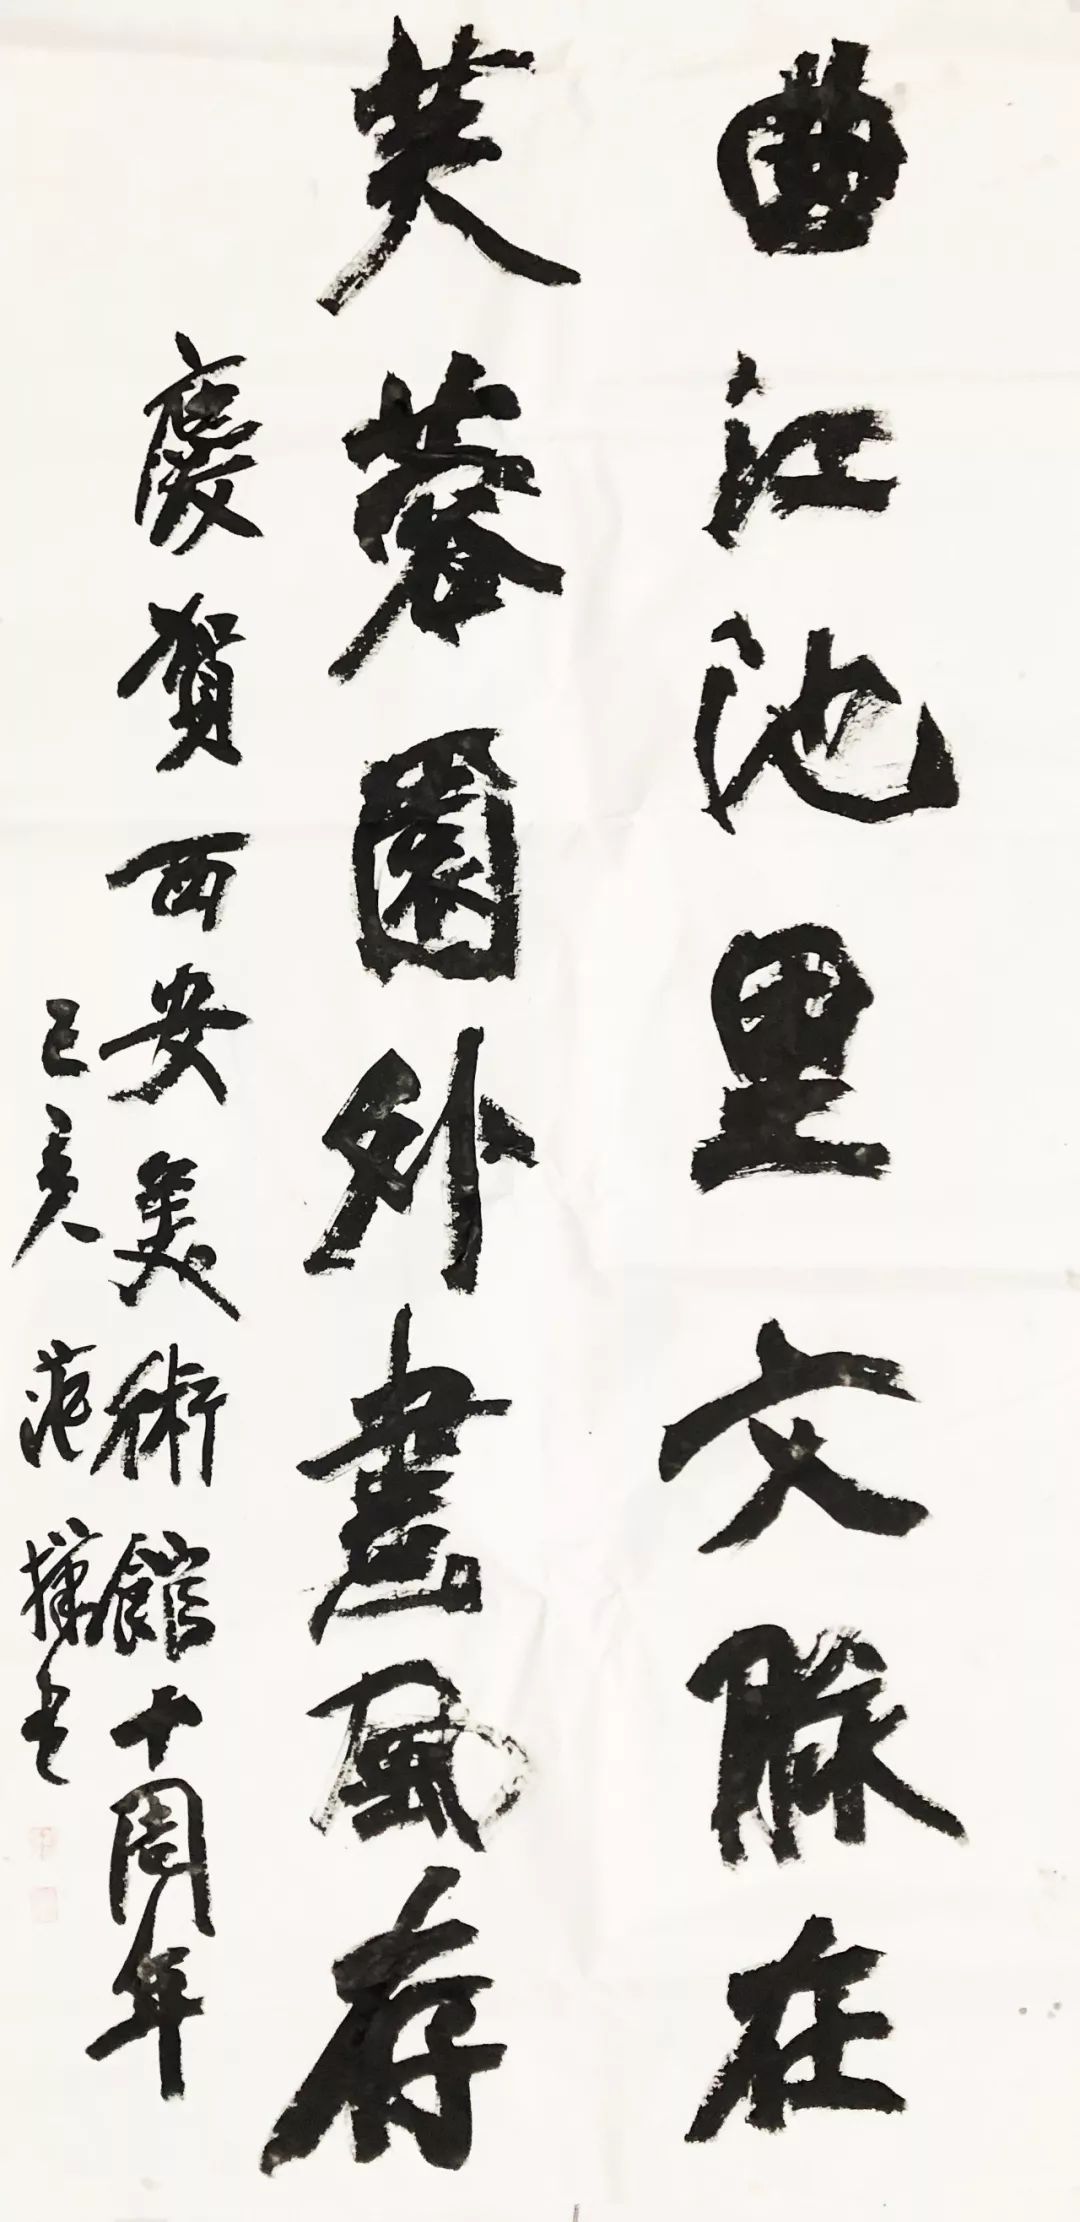 曲江池里文脈在
芙蓉園外畫風存
慶賀西安美術館十周年
己亥 范 書